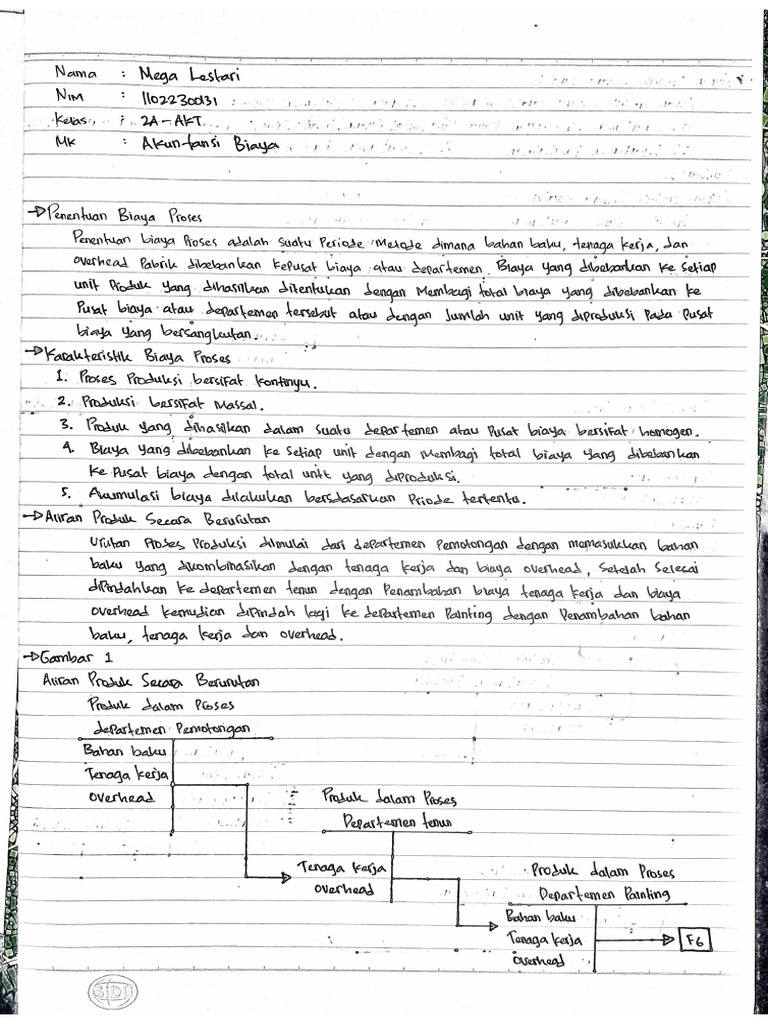 Nama : Mega Lestari
NIM : 1102230031
Kelas : 2A - AKT
MK : Akuntansi Biaya
→ Penentuan Biaya Proses
Penentuan biaya Proses adalah suatu Periode Metode dimana bahan baku, tenaga kerja, dan
overhead Pabrik dibebankan kepusat biaya atau departemen. Biaya yang dibebankan ke setiap
unit Produk yang dihasilkan ditentukan dengan Membagi total biaya yang dibebankan ke
Pusat biaya atau departemen tersebut atau dengan Jumlah unit yang diproduksi Pada Pusat
biaya yang bersangkutan.
→ Karakteristik Biaya Proses
1. Proses Produksi bersifat kontinyu.
2. Produksi bersifat Massal.
3. Produk yang dihasilkan dalam suatu departemen atau Pusat biaya bersifat homogen.
4. Biaya yang dibebankan ke setiap unit dengan Membagi total biaya yang dibebankan
ke Pusat biaya dengan total unit yang diproduksi.
5. Akumulasi biaya dilakukan bersdasarkan Priode tertentu.
→ Aliran Produk Secara Berurutan
Urutan Proses Produksi dimulai dari departemen Pemotongan dengan memasukkan bahan
baku yang dikombinasikan dengan tenaga kerja dan biaya overhead, setelah selesai
dipindahkan ke departemen tenun dengan Penambahan biaya tenaga kerja dan biaya
overhead kemudian dipindah lagi ke departemen Painting dengan Penambahan bahan
baku, tenaga kerja dan overhead.
→ Gambar 1
Aliran Produk Secara Berurutan
Produk dalam Proses
departemen Pemotongan
Bahan baku
Tenaga kerja
overhead
Produk dalam Proses
Departemen tenun
Tenaga kerja
overhead
Produk dalam Proses
Departemen Painting
Bahan baku
Tenaga kerja
overhead
FG
SIDU